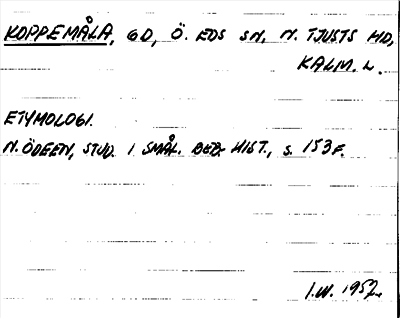 KOPPEMÅLA, GD, Ö. EDS SN, N. TJUSTS HD,
KALM. L.
ETYMOLOGI.
N. ÖDEEN, STUD. I SMÅL. BEB. HIST., S. 153 F.
I.W. 1952.